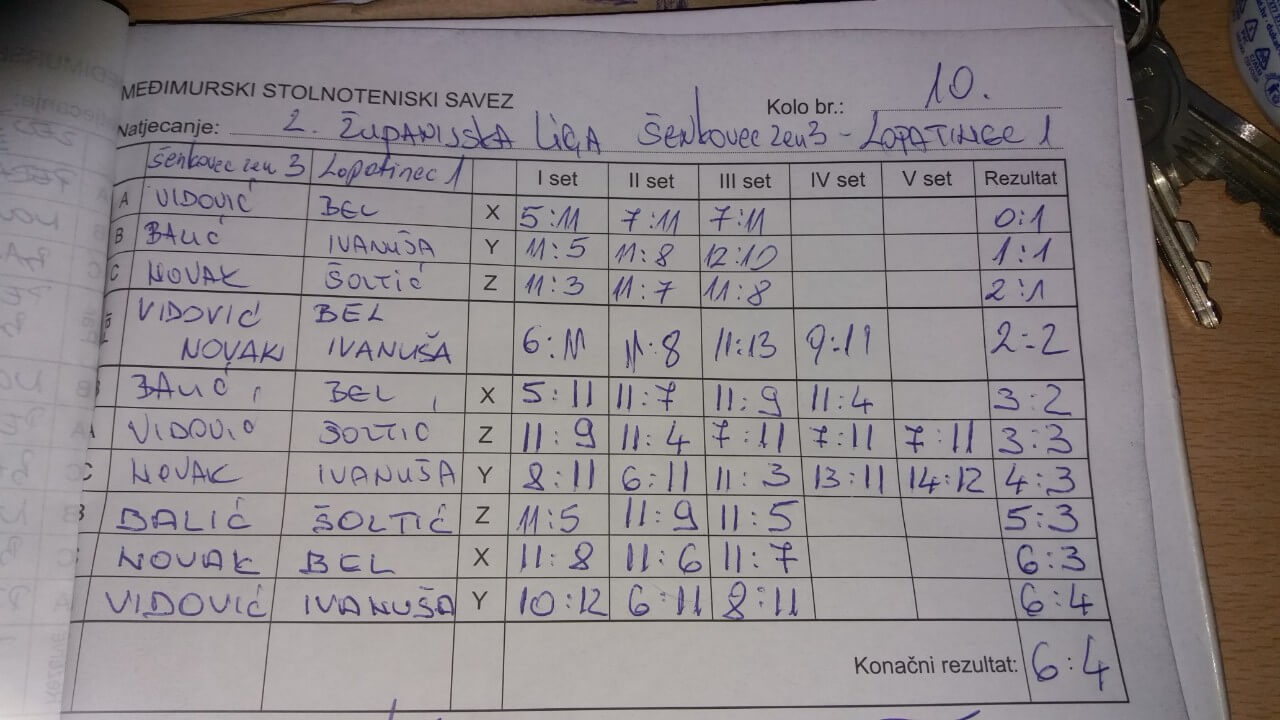 MEĐIMURSKI STOLNOTENISKI SAVEZ
Kolo br.: 10.
Natjecanje: 2. ŽUPANIJSKA LIGA ŠENKOVEC zeu 3 - LOPATINEC 1
Šenkovec zeu 3 Lopatinec 1 I set II set III set IV set V set Rezultat
A VIDOVIĆ BEL X 5:11 7:11 7:11 0:1
B BALIĆ IVANUŠA Y 11:5 11:8 12:10 1:1
C NOVAK ŠOLTIĆ Z 11:3 11:7 11:8 2:1
VIDOVIĆ BEL
NOVAK IVANUŠA 6:11 11:8 11:13 9:11 2:2
BALIĆ BEL X 5:11 11:7 11:9 11:4 3:2
VIDOVIĆ ŠOLTIĆ Z 11:9 11:4 7:11 7:11 7:11 3:3
C NOVAK IVANUŠA Y 8:11 6:11 11:3 13:11 14:12 4:3
B BALIĆ ŠOLTIĆ Z 11:5 11:9 11:5 5:3
NOVAK BEL X 11:8 11:6 11:7 6:3
VIDOVIĆ IVANUŠA Y 10:12 6:11 8:11 6:4
Konačni rezultat: 6:4